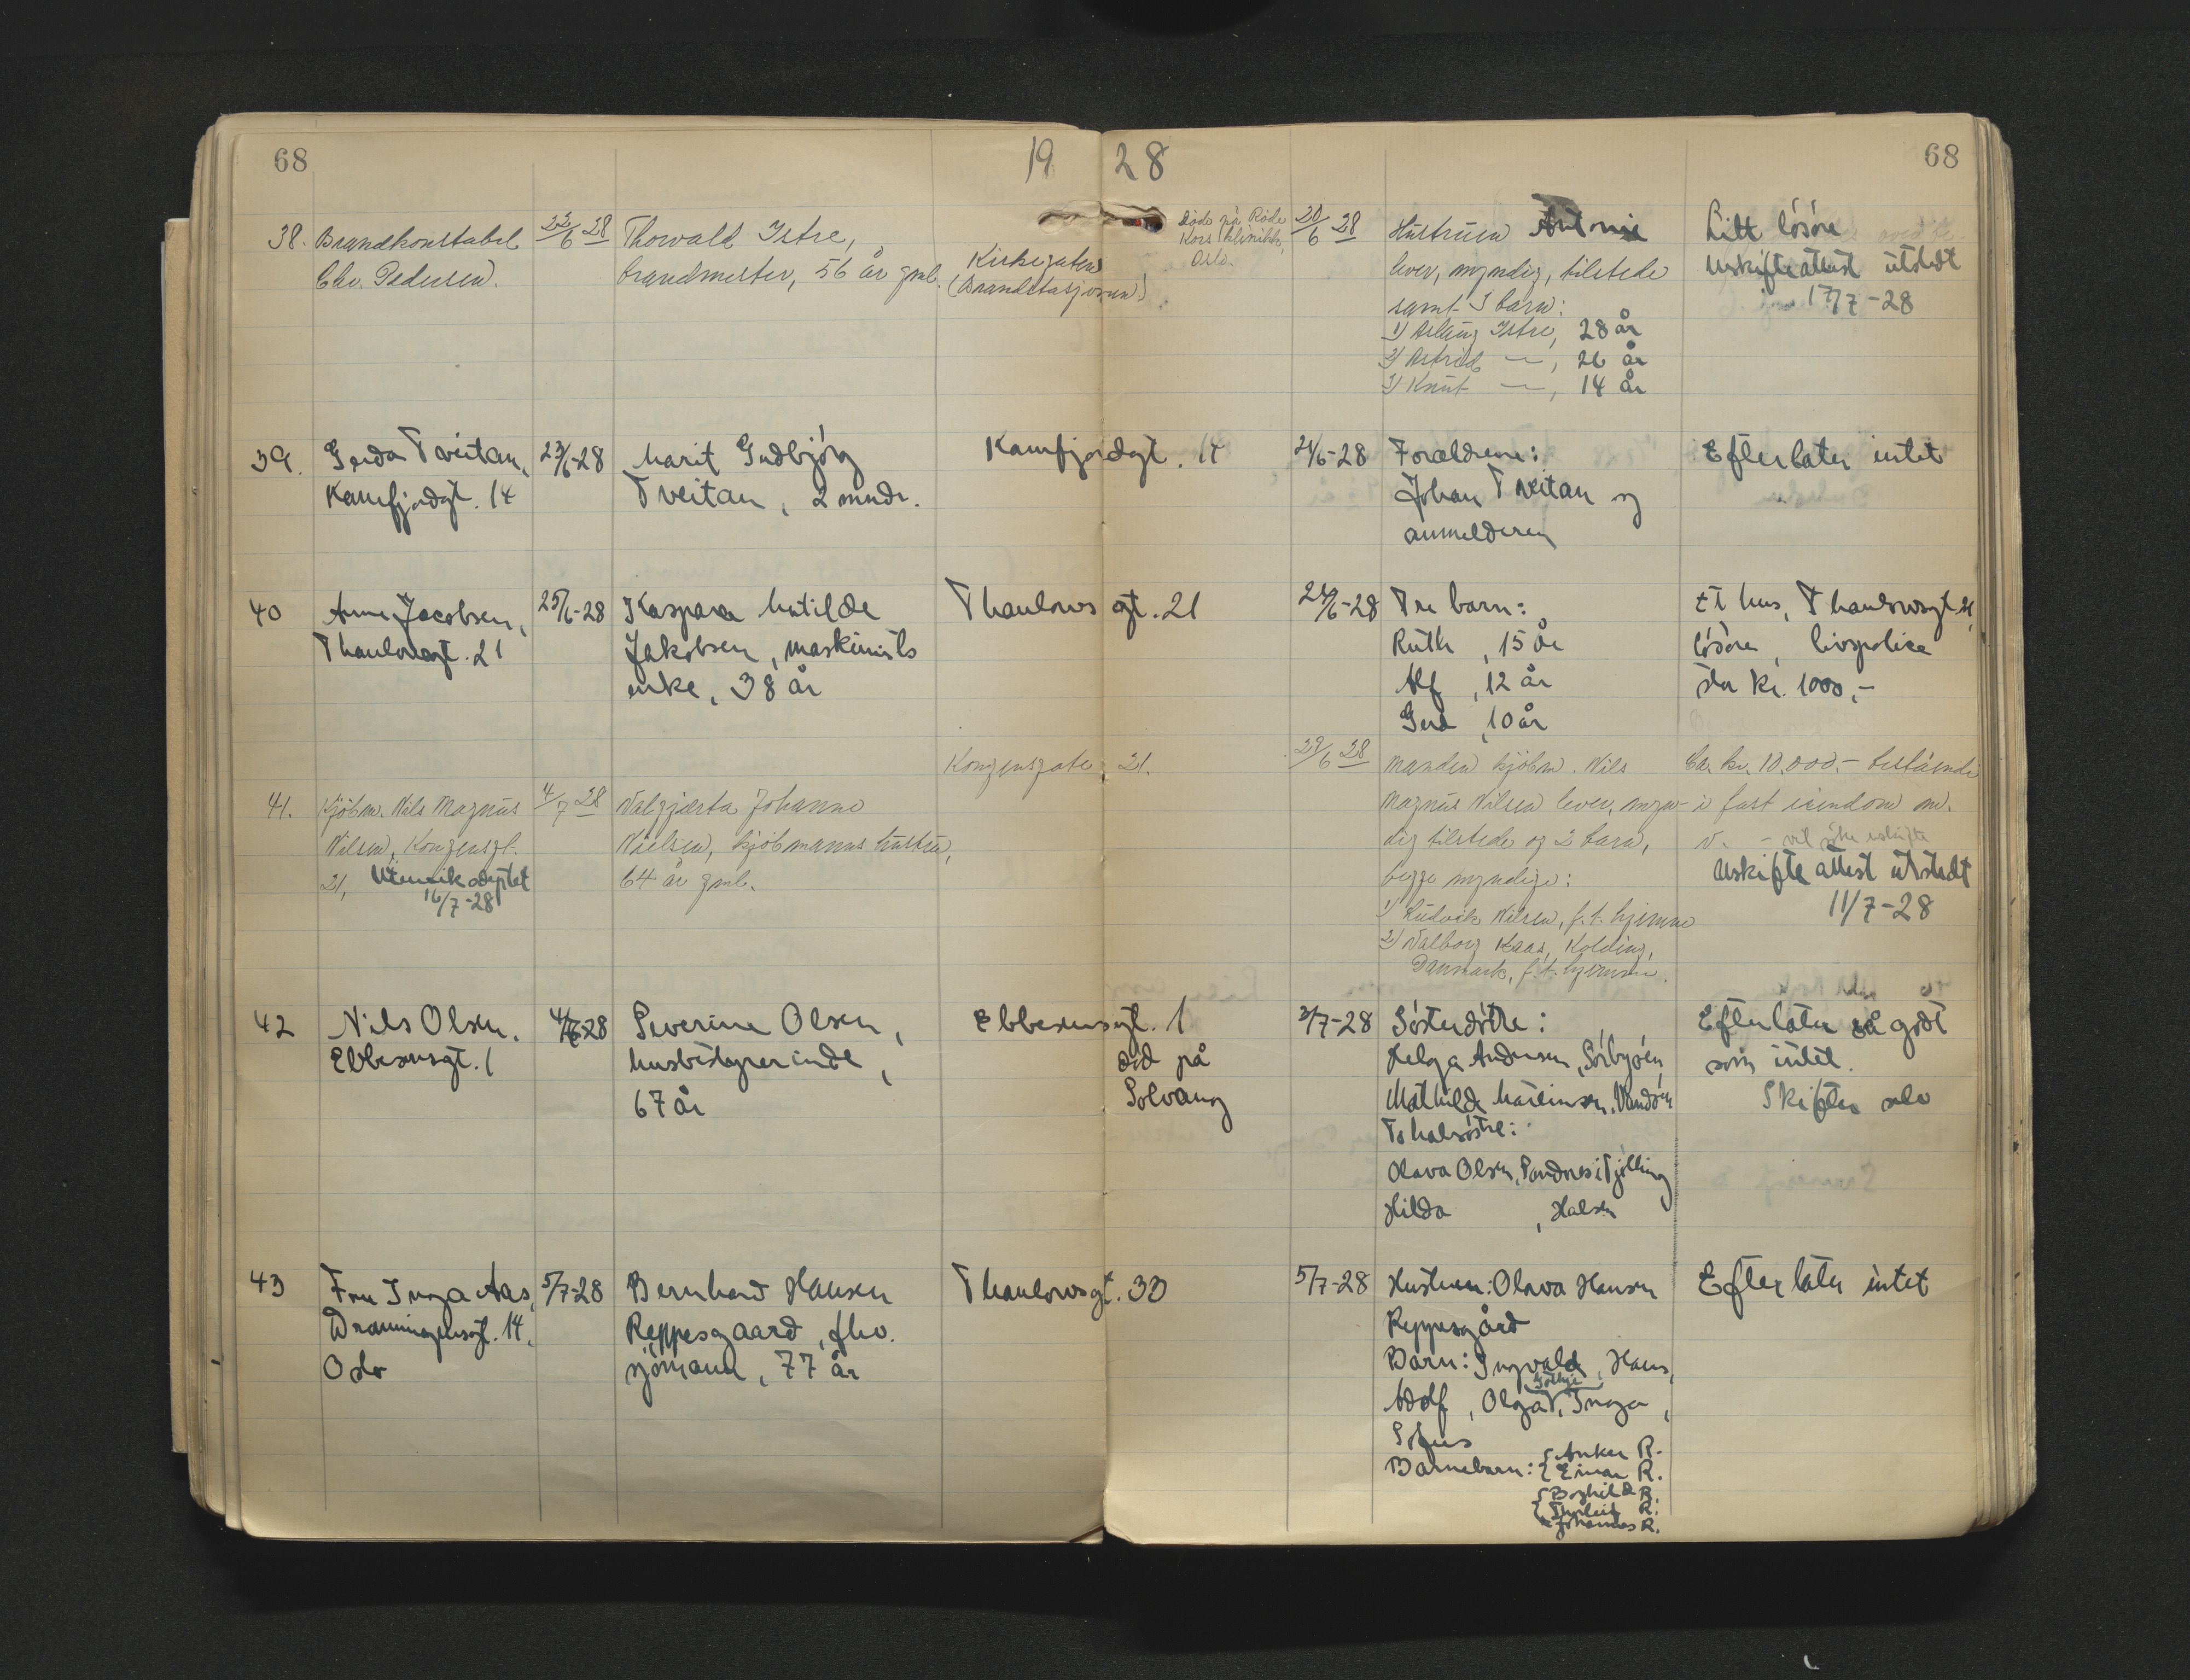 68
19 28
68
38. Brandkonstabel
Chr. Pedersen.
22/6 28
Thorvald Istre,
brandmester, 56 år gml.
Kirkegaten
(Brandstasjonen)
Døde på Røde
Kors klinikk,
Oslo.
20/6 28
Hustruen Antonie
lever, myndig, tilstede
samt 3 barn:
1) Aslaug Istre, 28 år
2) Astrid — , 26 år
3) Knut — , 14 år
Litt løsøre
Uskifteattest utstedt
17/7-28
39.
Gerda Tveitan,
Kamfjordgt. 14
23/6-28
Marit Gudbjørg
Tveitan, 2 mndr.
Kamfjordgt. 14
21/6-28
Forældrene:
Johan Tveitan og
anmelderen
Efterlater intet
40
Anna Jacobsen,
Thaulowsgt. 21
25/6-28
Kaspara Matilde
Jakobsen, maskinists
enke, 38 år
Thaulows gt. 21
24/6-28
Tre barn:
Ruth, 15 år
Alf, 12 år
Gerd, 10 år
Et hus, Thaulowsgt 21,
løsøre, livspolise
stor kr. 1000,-
41.
Kjøbm. Nils Magnus
Nilsen, Kongensgt.
21,
16/7-28
4/7 28
Valgjerta Johanne
Nielsen, kjøbmanns hustru,
64 år gml.
Kongensgate 21.
29/6 28
Manden kjøbm. Nils
Magnus Nilsen lever, myn-
dig tilstede og 2 barn,
begge myndige:
1) Ludvik Nilsen, f.t. hjemme
2) Valborg Kaas, Kolding,
Danmark, f.t. hjemme.
Ca. kr. 10.000.- bestående
i fast eiendom m.
v. - vil sitte i uskifte
Uskifteattest utstedt
11/7-28
42
Nils Olsen.
Ebbesensgt. 1
4/7-28
Severine Olsen,
husbestyrerinde,
67 år
Ebbesensgt. 1
død på
Solvang
3/7-28
Søsterdøtre:
Helga Andersen, Sørbyøen,
Mathilde Martinsen,
To halvsøstre:
Olava Olsen, Sandnes i Tjølling
Hilda , Halsen
Efterlater så godt
som intet.
Skifter selv
43
Fru Inga Aas,
Dronningensgt. 14,
Oslo
5/7-28
Bernhard Hansen
Reppesgaard, fhv.
sjømand, 77 år
Thaulowsgt. 33
5/7-28
Hustruen: Olava Hansen
Reppesgård
Barn: Ingvald, Hans,
Adolf, Olga, Inga,
Sofus
Barnebarn: { Anker R.
{ Einar R.
{ Borghild R.
{ Thorleif R.
Johannes R.
Efterlater intet